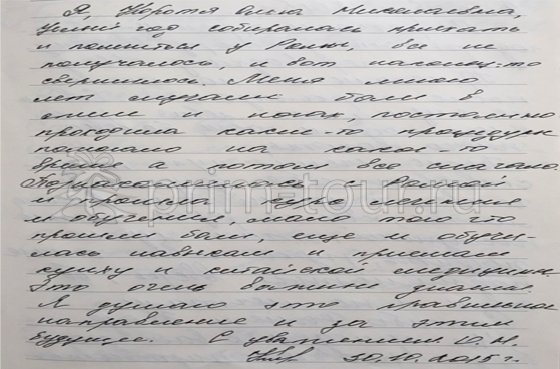 Я, Коротя Анна Николаевна,
целый год собиралась приехать
и полечиться у Розы, все не
получалось, и вот наконец-то
свершилось. Меня много
лет мучали боли в
спине и ногах, постоянно
проходила какие-то процедуры
помогало на какое-то
время а потом все сначала.
Познакомилась с Розой
и прошла курс лечения
и обучения, мало того что
прошли боли, еще и обучи-
лась навыкам и приемам
цуйху и китайской медицины
Это очень важные знания.
Я думаю это правильное
направление и за этим
будущее. С уважением О. Н.
30.10.2015 г.
prim-tour.ru